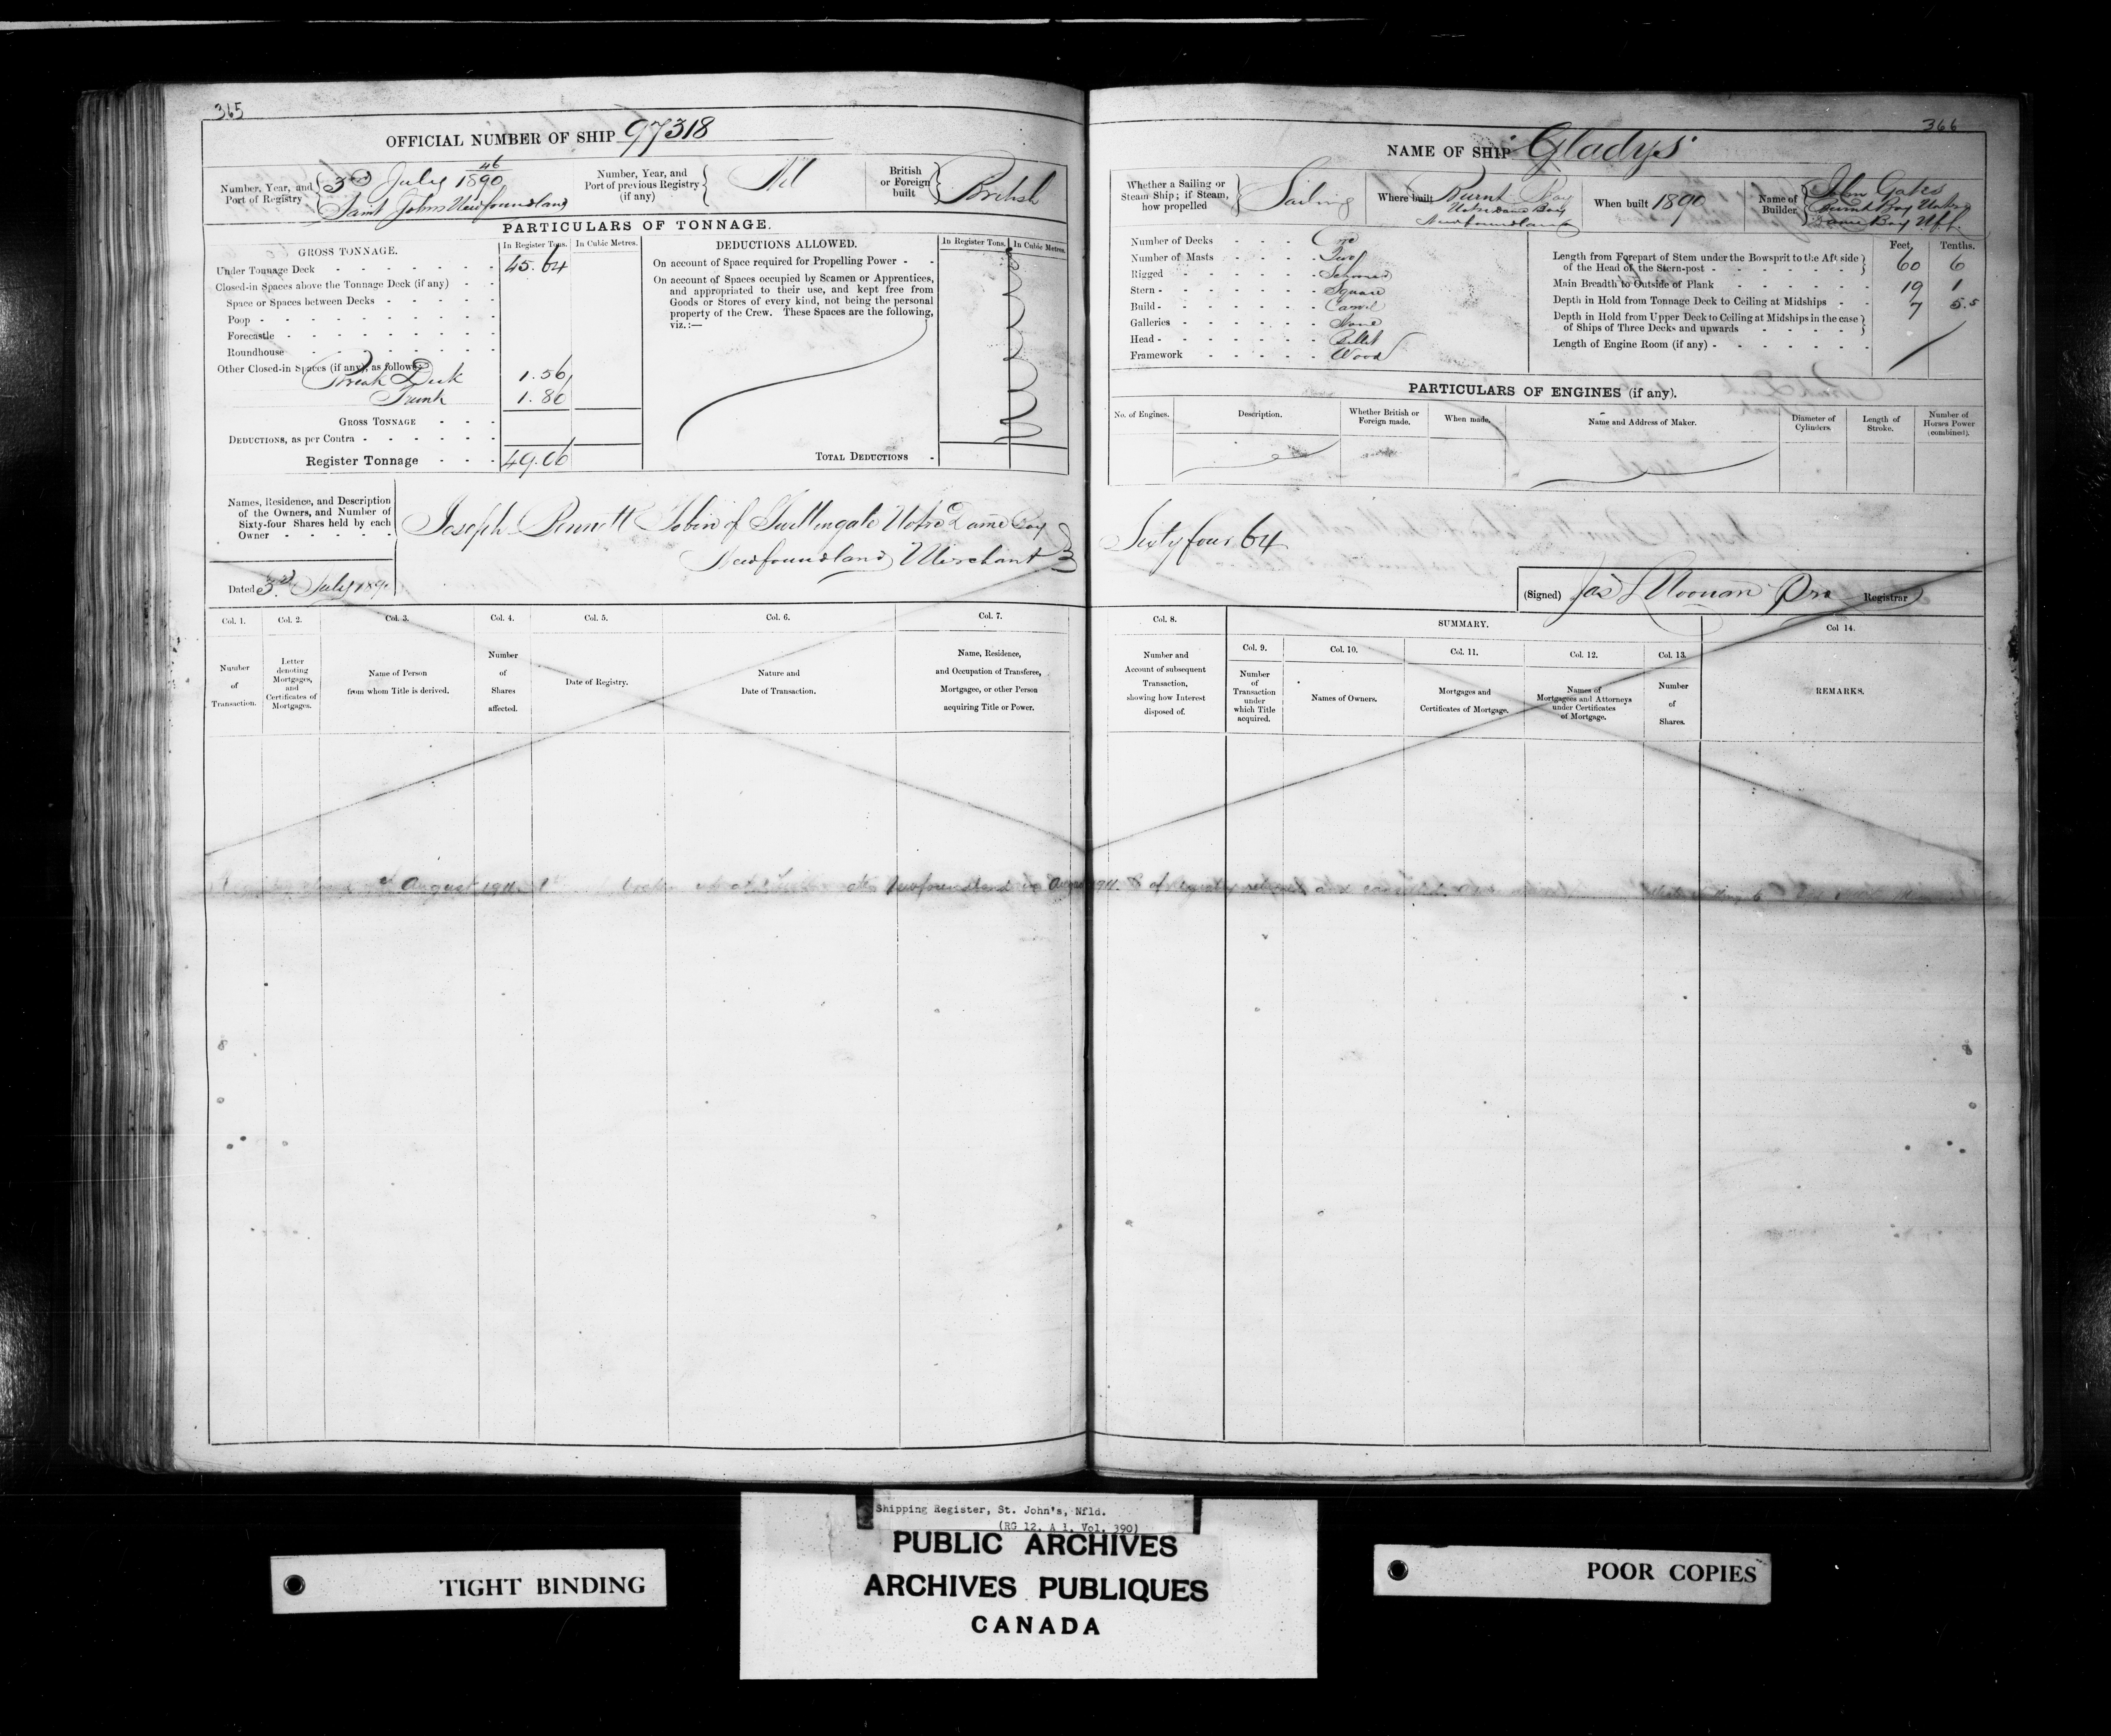 365
OFFICIAL NUMBER OF SHIP 97318
Number, Year, and
Port of Registry
46
3rd July 1890
Saint Johns Newfoundland
Number, Year, and
Port of previous Registry
(if any)
Nil
British
or Foreign
built
British
PARTICULARS OF TONNAGE.
GROSS TONNAGE.
In Register Tons.
In Cubic Metres.
Under Tonnage Deck
45.64
Closed-in Spaces above the Tonnage Deck (if any)
Space or Spaces between Decks
Poop
Forecastle
Roundhouse
Other Closed-in Spaces (if any), as follows:
Break Deck 1.56
Trunk 1.86
GROSS TONNAGE
DEDUCTIONS, as per Contra
Register Tonnage 49.06
DEDUCTIONS ALLOWED.
In Register Tons.
In Cubic Metres.
On account of Space required for Propelling Power
On account of Spaces occupied by Seamen or Apprentices,
and appropriated to their use, and kept free from
Goods or Stores of every kind, not being the personal
property of the Crew. These Spaces are the following,
viz.:—
TOTAL DEDUCTIONS
Names, Residence, and Description
of the Owners, and Number of
Sixty-four Shares held by each
Owner
Joseph Bennett Tobin of Twillingate Notre Dame Bay
Newfoundland Merchant
Dated 3rd July 1890
Col. 1.
Number
of
Transaction.
Col. 2.
Letter
denoting
Mortgages,
and
Certificates of
Mortgages.
Col. 3.
Name of Person
from whom Title is derived.
Col. 4.
Number
of
Shares
affected.
Col. 5.
Date of Registry.
Col. 6.
Nature and
Date of Transaction.
Col. 7.
Name, Residence,
and Occupation of Transferee,
Mortgagee, or other Person
acquiring Title or Power.
August
Newfoundland
366
NAME OF SHIP "Gladys"
Whether a Sailing or
Steam Ship; if Steam,
how propelled
Sailing
Where built
Burnt Bay
Notre Dame Bay
Newfoundland
When built 1890
Name of
Builder
John Gates
Burnt Bay Notre
Dame Bay Nfld.
Number of Decks One
Number of Masts Two
Rigged Schooner
Stern Square
Build Carvel
Galleries None
Head Billet
Framework Wood
Feet,
Tenths.
Length from Forepart of Stem under the Bowsprit to the Aft side
of the Head of the Stern-post
60 6
Main Breadth to Outside of Plank
19 1
Depth in Hold from Tonnage Deck to Ceiling at Midships
7 5.5
Depth in Hold from Upper Deck to Ceiling at Midships in the case
of Ships of Three Decks and upwards
Length of Engine Room (if any)
PARTICULARS OF ENGINES (if any).
No. of Engines.
Description.
Whether British or
Foreign made.
When made.
Name and Address of Maker.
Diameter of
Cylinders.
Length of
Stroke.
Number of
Horses Power
(combined).
Sixty four 64
(Signed) Jas L Noonan Pro Registrar
Col. 8.
Number and
Account of subsequent
Transaction,
showing how Interest
disposed of.
SUMMARY.
Col. 9.
Number
of
Transaction
under
which Title
acquired.
Col. 10.
Names of Owners.
Col. 11.
Mortgages and
Certificates of Mortgage.
Col. 12.
Names of
Mortgagees and Attorneys
under Certificates
of Mortgage.
Col. 13.
Number
of
Shares.
Col 14.
REMARKS.
Shipping Register, St. John's, Nfld.
(RG 12, A 1, Vol. 390)
PUBLIC ARCHIVES
ARCHIVES PUBLIQUES
CANADA
TIGHT BINDING
POOR COPIES